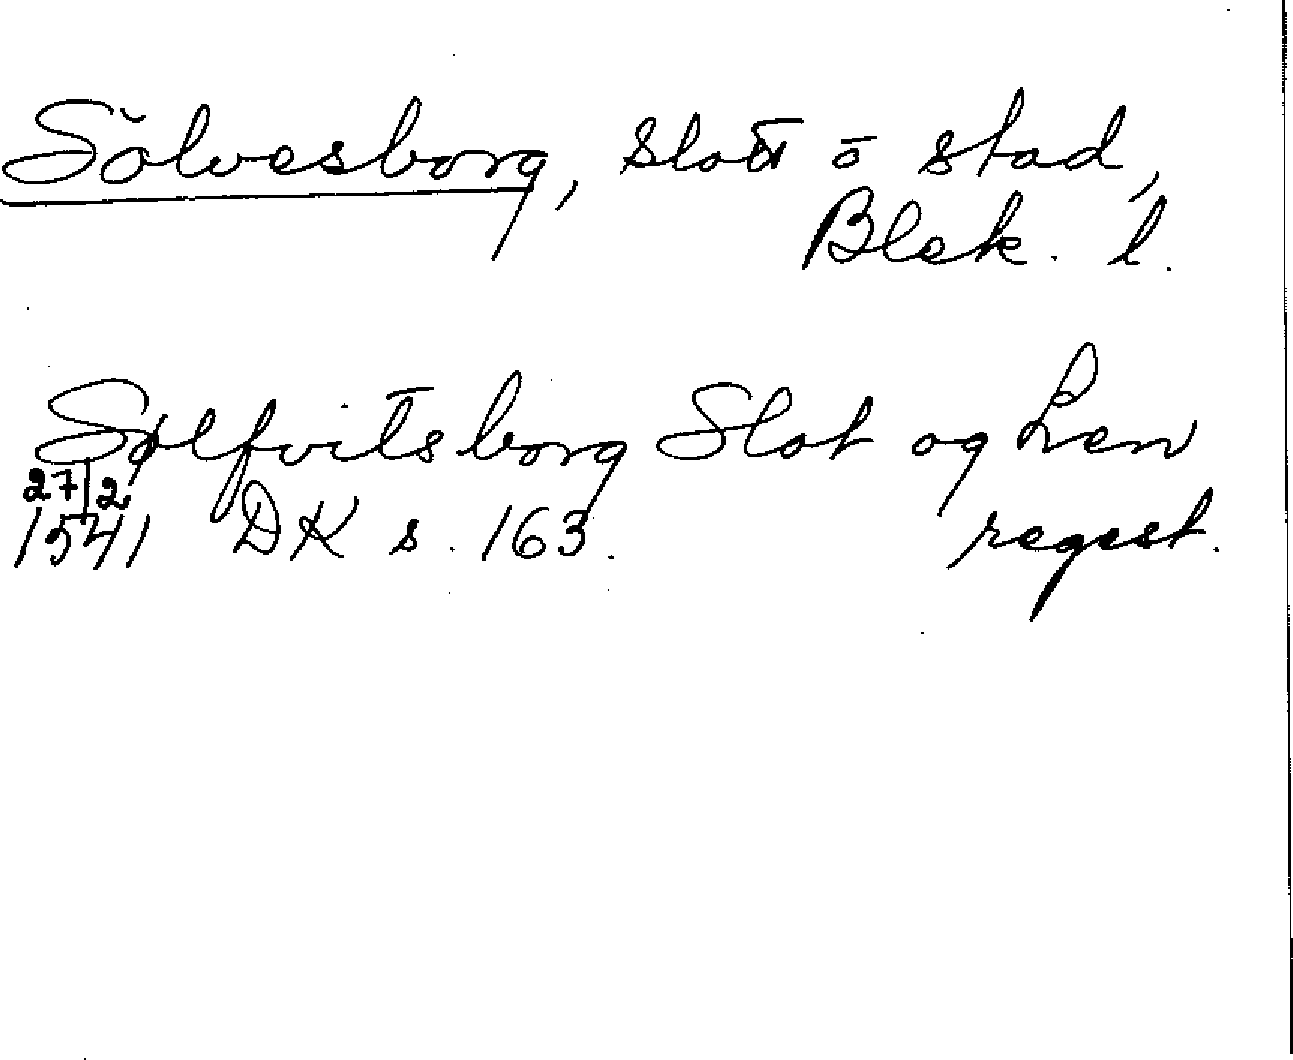 Sölvesborg, slott o stad,
Blek. l.
Sølfvitsborg Slot og Len
27/2
1541 DK s. 163. regest.